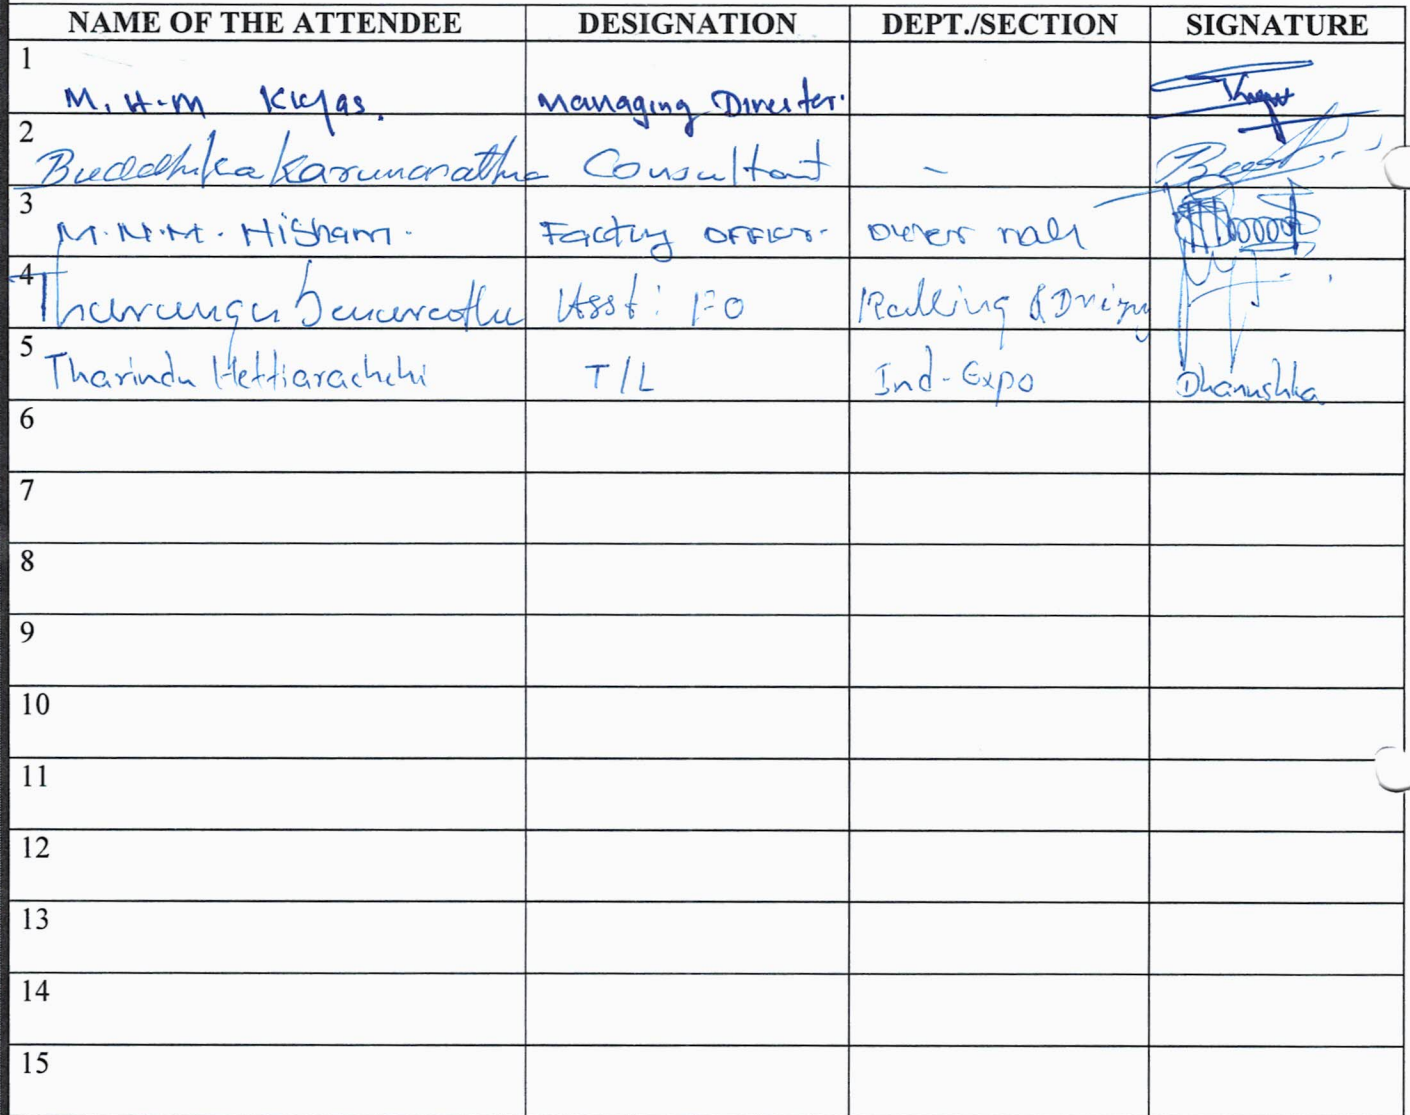 NAME OF THE ATTENDEE DESIGNATION DEPT./SECTION SIGNATURE
1
M. H-M Kiyas. Managing Director.
2
Buddhika Karunarathna Consultant -
3
M.N.M. Hisham. Factory OFFICER.
4
Tharanga Asst: FO Rolling &
5
Tharindu Hettiarachchi T/L Ind-Expo Dhanushka
6
7
8
9
10
11
12
13
14
15